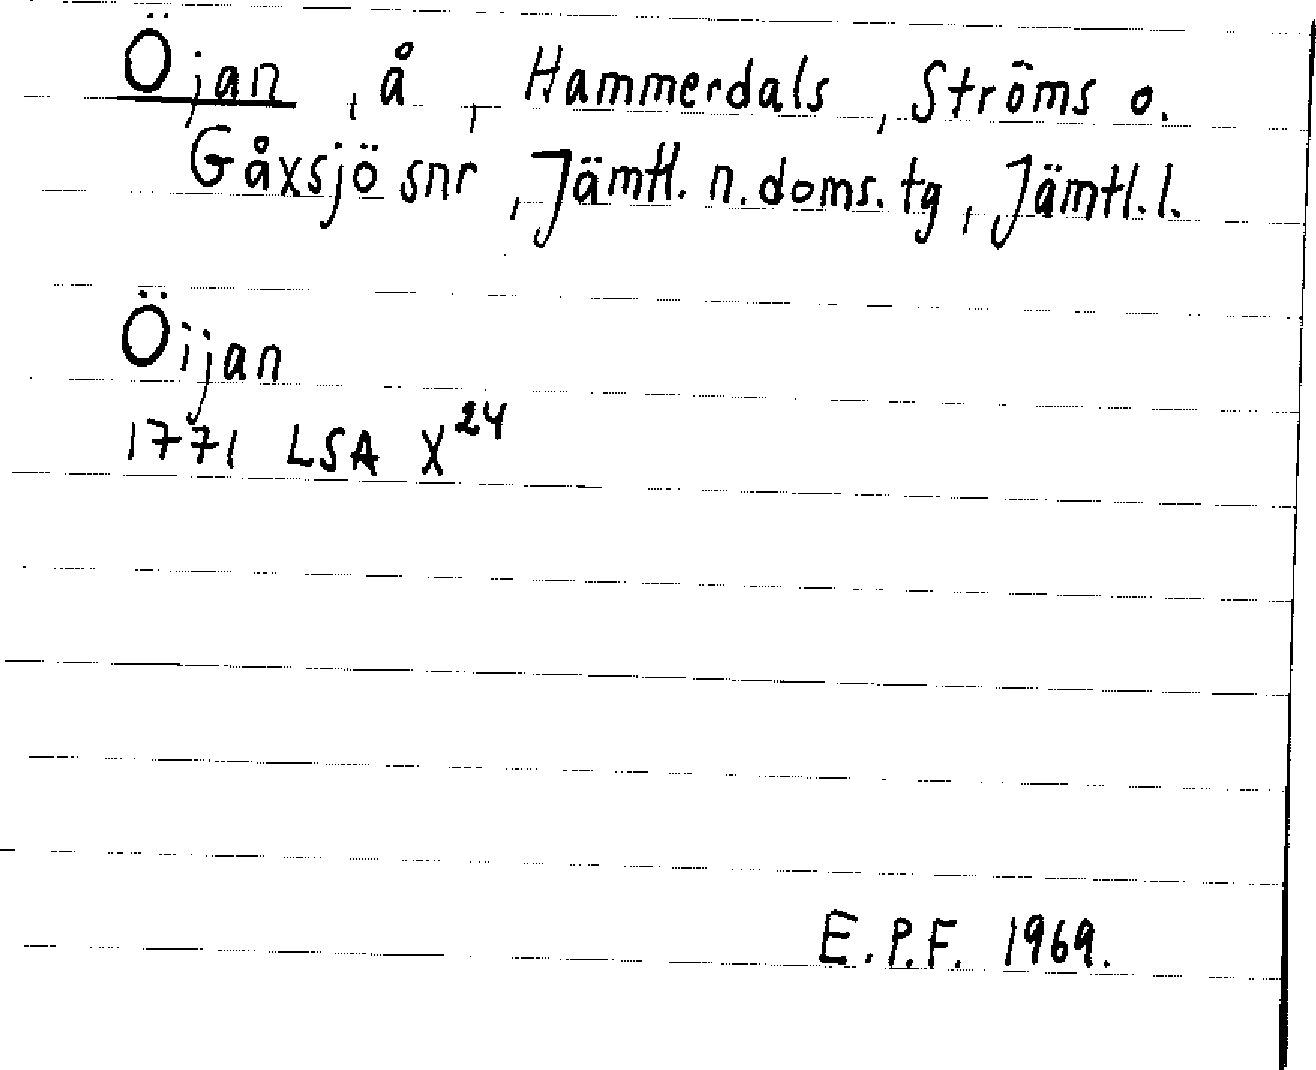 Öjan, å, Hammerdals, Ströms o.
Gåxsjö snr, Jämtl. n. doms. tg, Jämtl. l.
Öijan
1771 LSA X24
E.P.F. 1969.